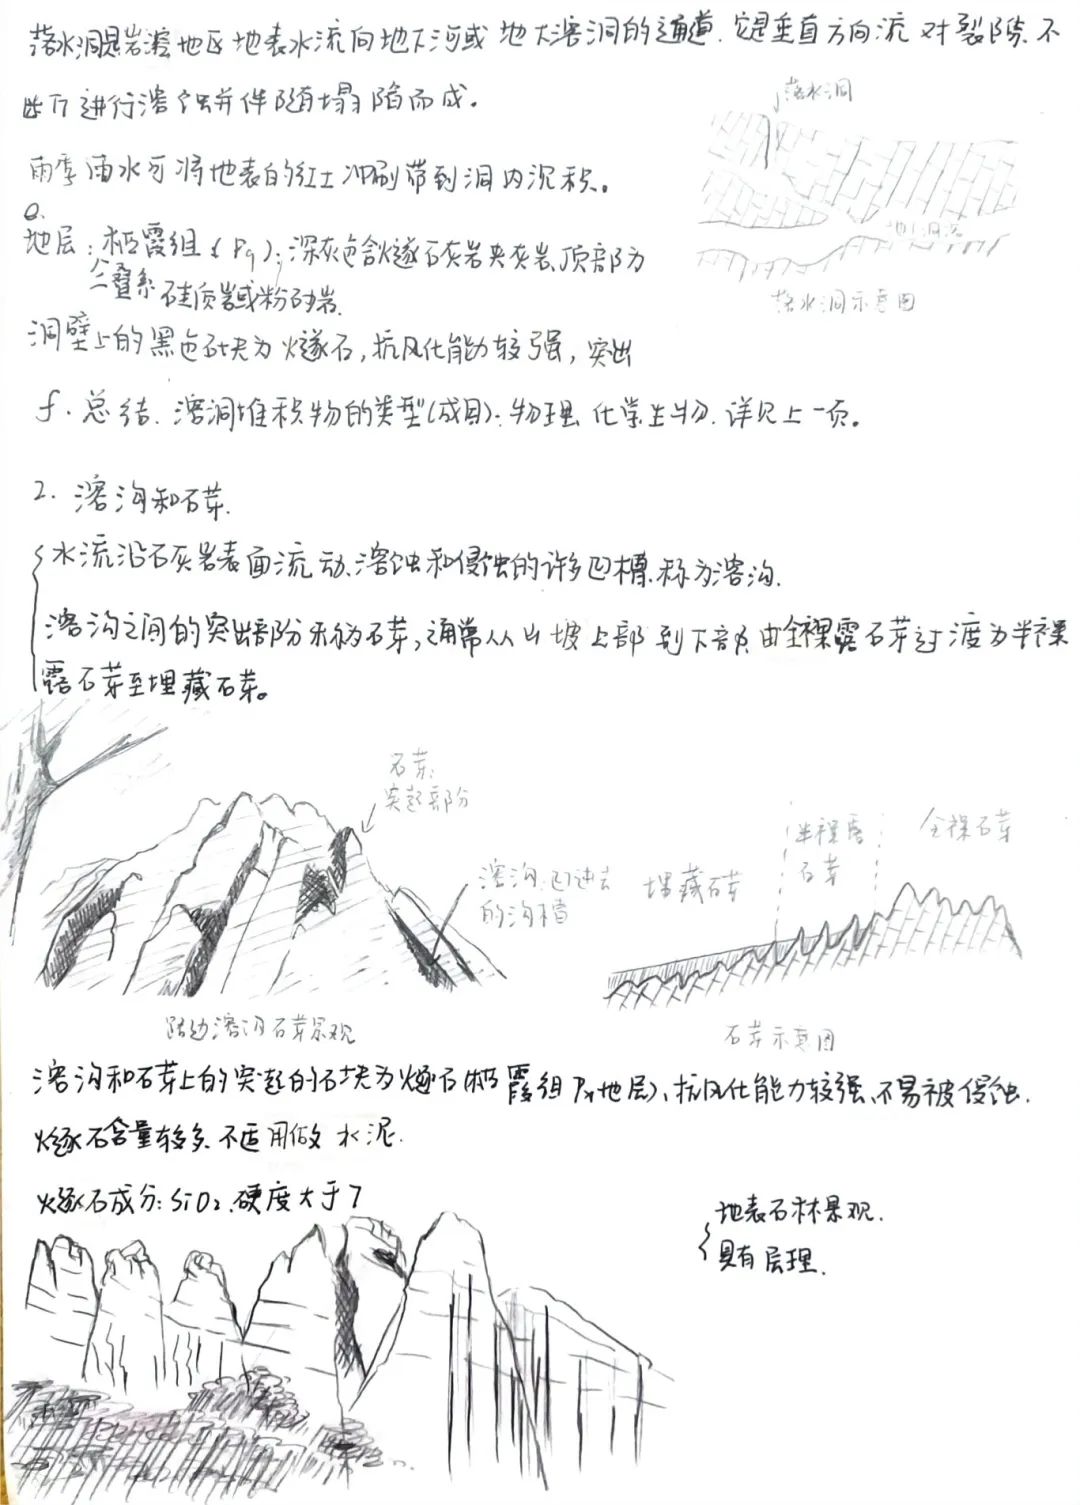 落水洞是岩溶地区地表水流向地下河或地下溶洞的通道.它是垂直方向流对裂隙不
断进行溶蚀并伴随塌陷而成.
落水洞
雨季雨水可将地表的红土冲刷带到洞内沉积。
e.
地层:栖霞组(Pq):深灰色含燧石灰岩夹灰岩、顶部为
二叠系 硅质岩或粉砂岩.
落水洞示意图
洞壁上的黑色石块为火燧石,抗风化能力较强,突出
f.总结.溶洞堆积物的类型(成因):物理 化学生物.详见上一页。
2.溶沟和石芽.
水流沿石灰岩表面流动、溶蚀和侵蚀的许多凹槽.称为溶沟.
溶沟之间的突出部分称为石芽,通常从山坡上部到下部 由全裸露石芽过渡为半裸
露石芽至埋藏石芽。
石芽:
突起部分
溶沟:凹进去
的沟槽
埋藏石芽
半裸露
石芽
全裸石芽
路边溶沟石芽景观
石芽示意图
溶沟和石芽上的突起的石块为燧石(栖霞组 地层),抗风化能力较强、不易被侵蚀.
燧石含量较多 不适用做水泥.
燧石成分:SiO2.硬度大于7
地表石林景观.
具有层理.